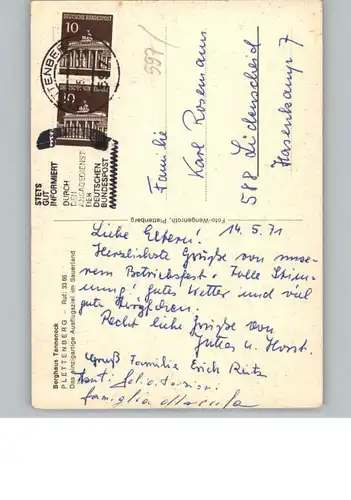 10
DEUTSCHE BUNDESPOST
PLETTENBERG
STETS
GUT
INFORMIERT
DURCH
DEN
ANSAGEDIENST
DER
DEUTSCHEN
BUNDESPOST
597/
Familie
Karl Rosemann
588 Lüdenscheid
Hasenkamp 7
Foto-Wengenroth, Plettenberg
Berghaus Tanneneck
PLETTENBERG - Ruf: 33 66
Das einzigartige Ausflugsziel im Sauerland
14.5.71
Liebe Eltern!
Herzlichste Grüße von unse-
rem Betriebsfest. Tolle Stim-
mung! Gutes Wetter und viel
gute
Recht liebe Grüße von
Jutta u. Horst.
Gruß Familie Erich
famiglia